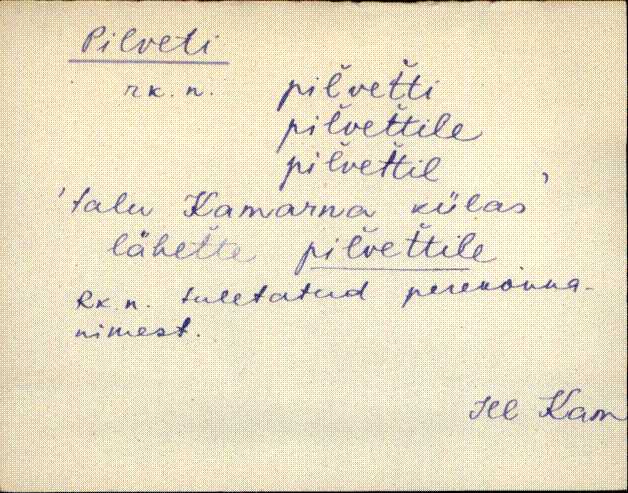 Pilveti
rk. n. pil̆vet̆ti
pil̆vet̆tile
pil̆vet̆til
'talu Kamarna külas'
lähet̆te pil̆vet̆tile
Rk. n. tuletatud perekonna-
nimest.
Hll Kam